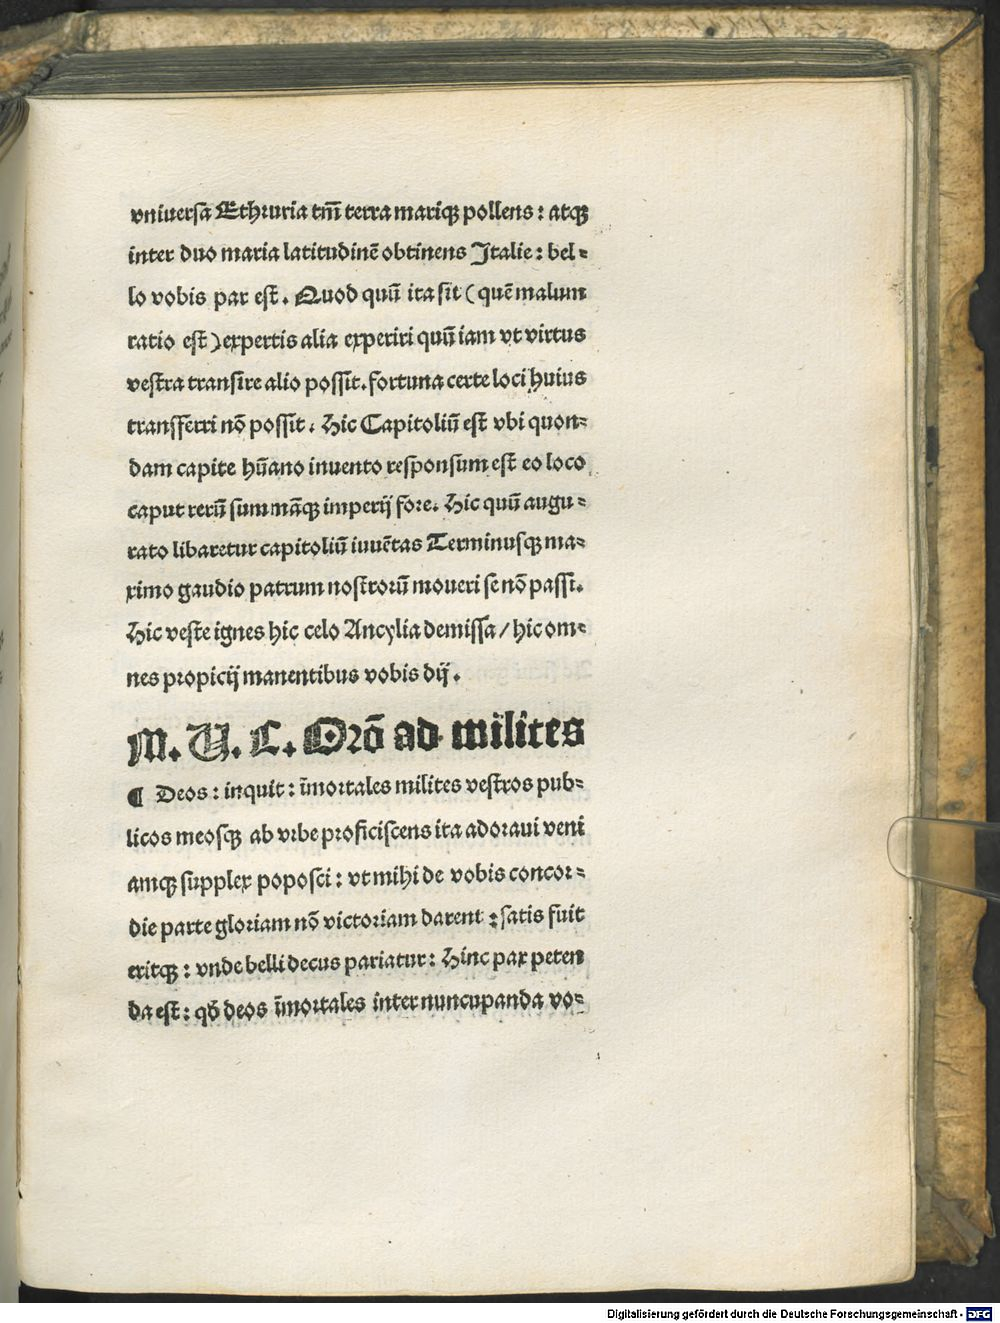 vniuersa Ethruria tm̄ terra mariqꝫ pollens : atqꝫ
inter duo maria latitudinē obtinens Italie : bel⸗
lo vobis par est . Quod quū ita sit ( quē malum
ratio est ) expertis alia experiri quū iam vt virtus
vestra transire alio possit . fortuna certe loci huius
transferri nō possit . Hic Capitoliū est vbi quon⸗
dam capite hūano inuento responsum est eo loco
caput rerū summāqꝫ imperij fore . Hic quū augu⸗
rato libaretur capitoliū iuuētas Terminusqꝫ ma⸗
ximo gaudio patrum nostrorū moueri se nō passi .
Hic veste ignes hic celo Ancylia demissa / hic om⸗
nes propicij manentibus vobis dij .
M. V. C. Orō ad milites
¶ Deos : inquit : īmortales milites vestros pub⸗
licos meosqꝫ ab vrbe proficiscens ita adoraui veni
amqꝫ supplex poposci : vt mihi de vobis concor⸗
die parte gloriam nō victoriam darent : satis fuit
eritqꝫ : vnde belli decus pariatur : Hinc pax peten
da est : qđ deos īmortales inter nuncupanda vo⸗
Digitalisierung gefördert durch die Deutsche Forschungsgemeinschaft - DFG